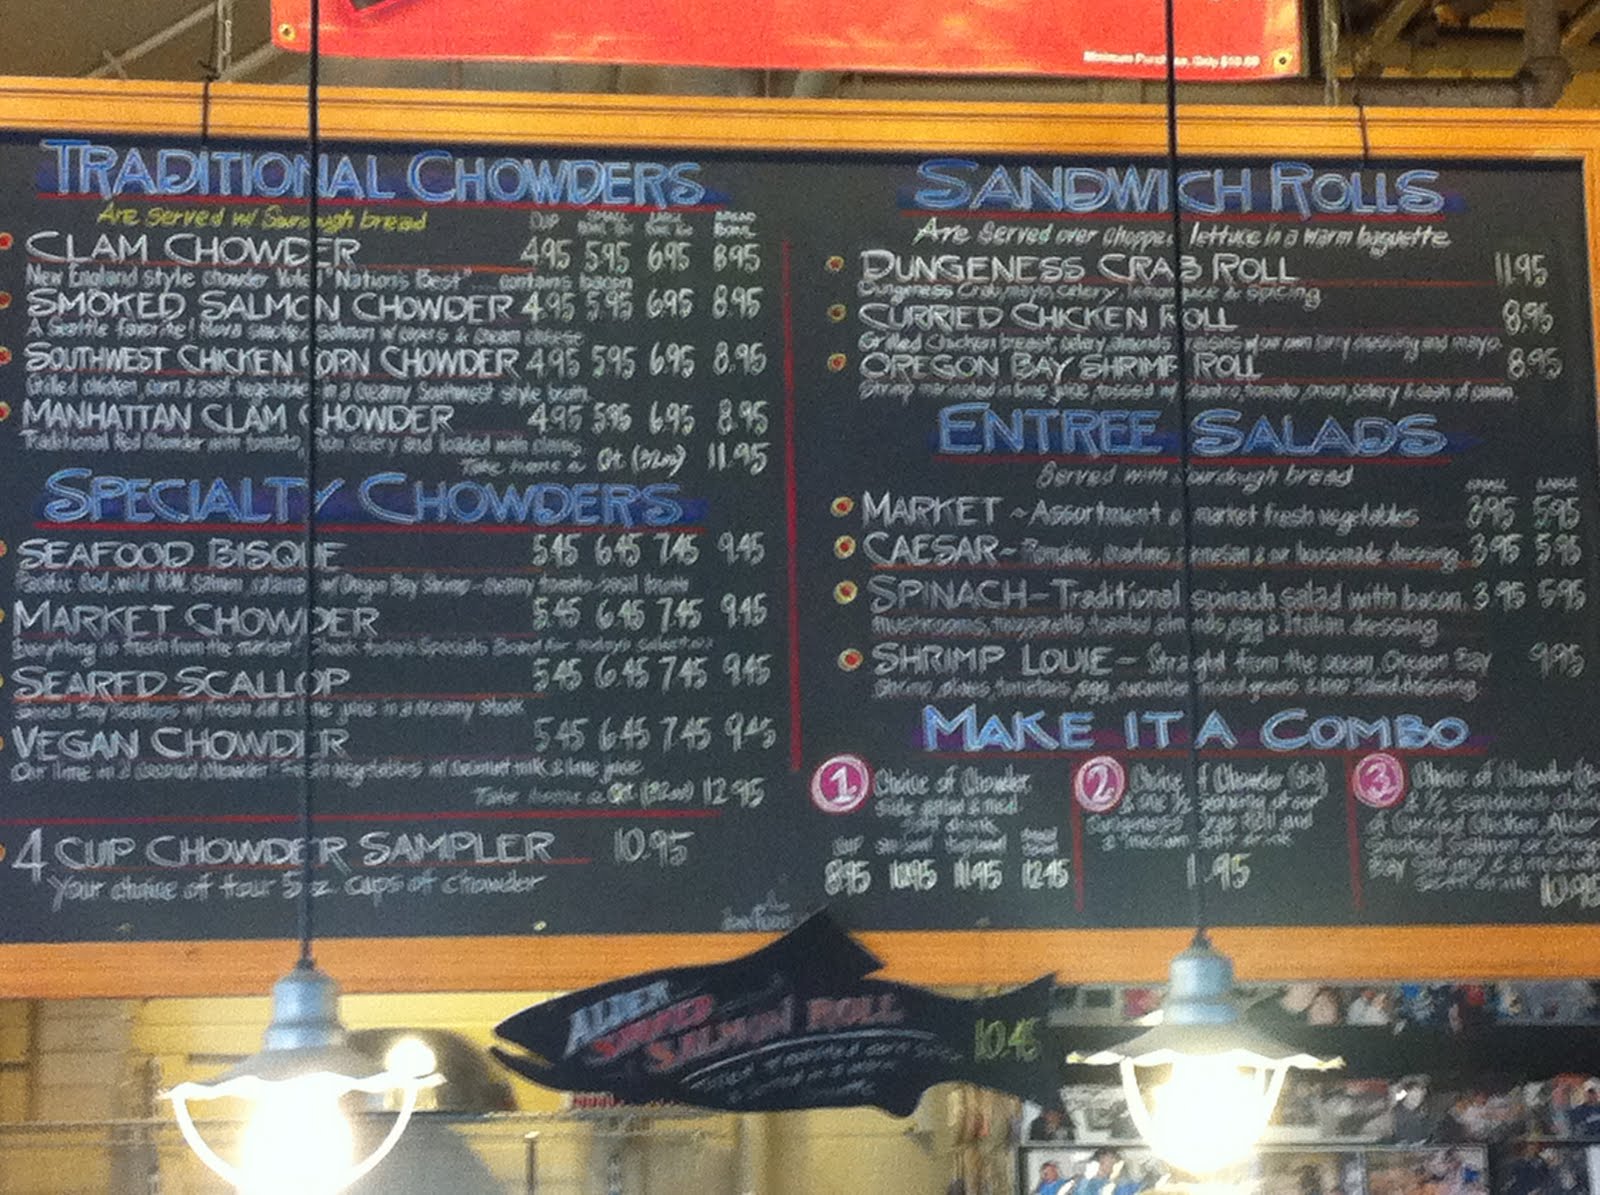 Minimum Purchase, Only
TRADITIONAL CHOWDERS
Are served w/ Sourdough bread
CUP SMALL LARGE BREAD BOWL
CLAM CHOWDER 4.95 5.95 6.95 8.95
New England style chowder Voted "Nation's Best" ... contains bacon
SMOKED SALMON CHOWDER 4.95 5.95 6.95 8.95
A Seattle favorite! Nova smoked salmon w/ capers & cream cheese
SOUTHWEST CHICKEN CORN CHOWDER 4.95 5.95 6.95 8.95
Grilled chicken, corn & vegetables in a creamy Southwest style broth
MANHATTAN CLAM CHOWDER 4.95 5.95 6.95 8.95
Traditional Red Chowder with tomato, celery and loaded with clams
Take home a Qt. (32oz) 11.95
SPECIALTY CHOWDERS
SEAFOOD BISQUE 5.45 6.45 7.45 9.45
Pacific Cod, wild N.W. Salmon, w/ Oregon Bay Shrimp - creamy tomato basil
MARKET CHOWDER 5.45 6.45 7.45 9.45
Everything is fresh from the market! Check today's Specials Board for today's selection
SEARED SCALLOP 5.45 6.45 7.45 9.45
Seared Bay Scallops w/ fresh dill & lime juice in a creamy stock
VEGAN CHOWDER 5.45 6.45 7.45 9.45
a coconut chowder Fresh vegetables w/ coconut milk & lime juice
Take home a Qt (32oz) 12.95
4 CUP CHOWDER SAMPLER 10.95
Your choice of four 5oz cups of chowder
SANDWICH ROLLS
Are Served over chopped lettuce in a warm baguette
DUNGENESS CRAB ROLL 11.95
Dungeness Crab, mayo, celery, lemon juice & spicing
CURRIED CHICKEN ROLL 8.95
Grilled Chicken breast, celery, almonds, raisins w/ our own curry dressing and mayo
OREGON BAY SHRIMP ROLL 8.95
Shrimp marinated in lime juice, tossed w/ cilantro, tomato, onion, celery & dash of cumin
ENTREE SALADS
Served with Sourdough bread
SMALL LARGE
MARKET ~ Assortment of market fresh vegetables 3.95 5.95
CAESAR - Romaine, croutons, parmesan & our housemade dressing 3.95 5.95
SPINACH - Traditional spinach salad with bacon, 3.95 5.95
mushrooms, mozzarella, toasted almonds, egg & Italian dressing
SHRIMP LOUIE - Straight from the ocean, Oregon Bay 9.95
Shrimp, olives, tomatoes, egg, cucumber, mixed greens & 1000 Island dressing
MAKE IT A COMBO
1 Choice of Chowder
side salad & med
soft drink
8.95 10.95 11.95 12.45
2 Choice of Chowder (8oz)
& one 1/2 serving of our
Dungeness Crab Roll and
a medium soft drink
1.95
3 Choice of Chowder
& 1/2 sandwich choice
of Curried Chicken, Alder
Smoked Salmon or Oregon
Bay Shrimp & a medium
soft drink 10.95
ALDER
SMOKED
SALMON ROLL
10.45